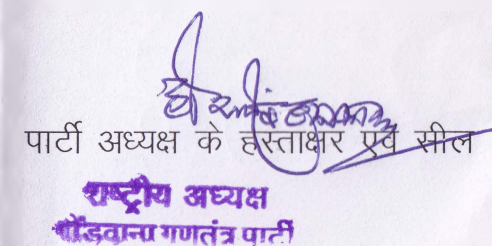 पार्टी अध्यक्ष के हस्ताक्षर एवं सील
राष्ट्रीय अध्यक्ष
गोंडवाना गणतंत्र पार्टी